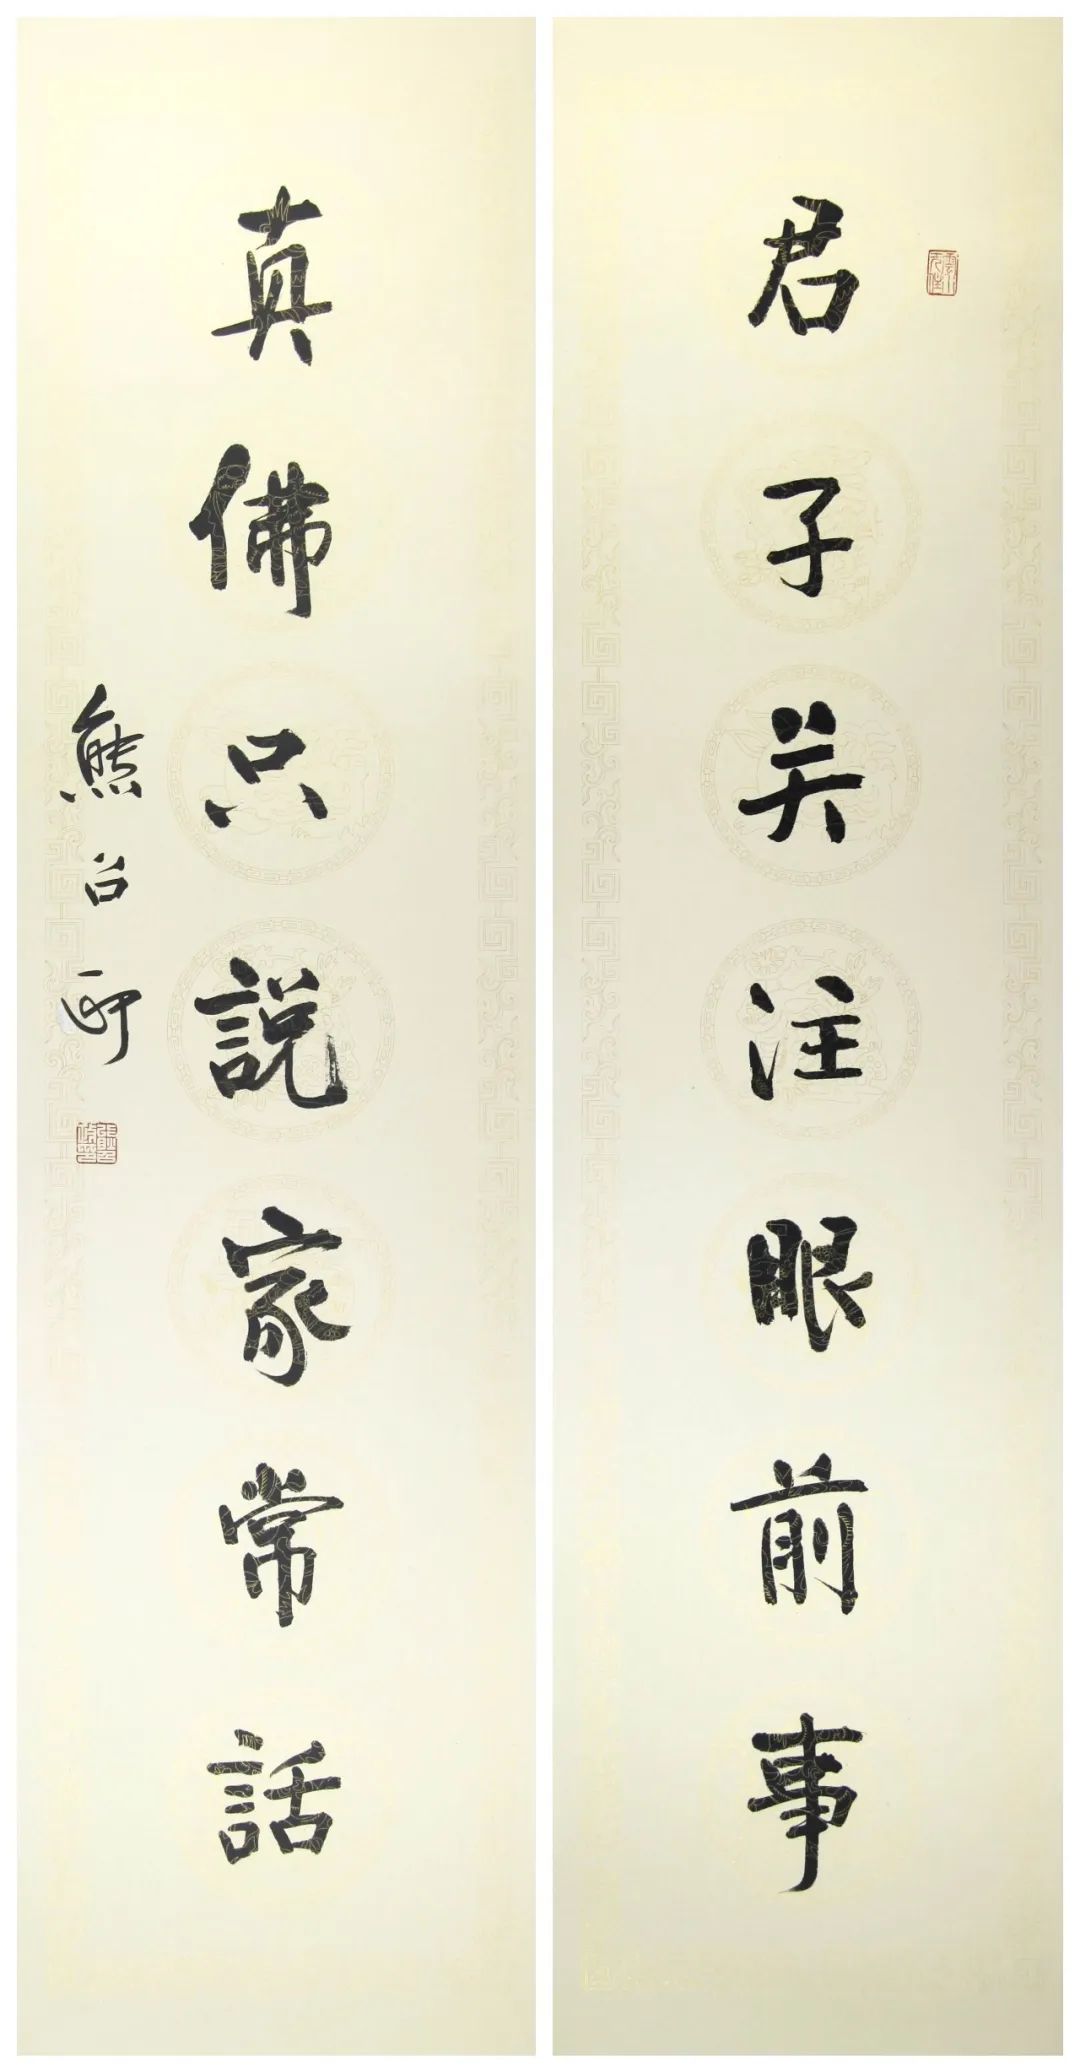 君子关注眼前事
真佛只説家常話
熊召政